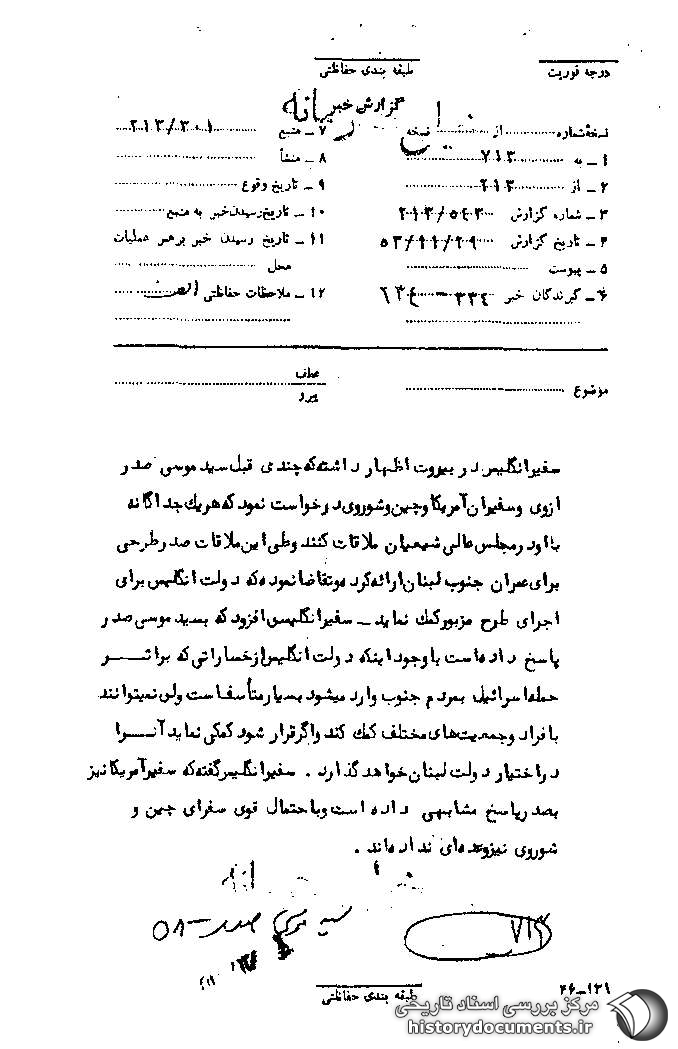 درجه فوریت
طبقه بندی حفاظتی
گزارش خبر
نسخه شماره از نسخه
۱ـ به ۷۱۳
۲ـ از ۲۱۳
۳ـ شماره گزارش ۲۱۳/۵۴۳۰
۴ـ تاریخ گزارش ۵۳/۱۱/۲۹
۵ـ پیوست
۶ـ گیرندگان خبر ۳۳۴
۷ـ منبع ۲۱۳/۳۰۱
۸ـ منشأ
۹ـ تاریخ وقوع
۱۰ـ تاریخ رسیدن خبر به منبع
۱۱ـ تاریخ رسیدن خبر برهبر عملیات
محل
۱۲ـ ملاحظات حفاظتی
موضوع
عطف
پیرو
سفیر انگلیس در بیروت اظهار داشته که چندی قبل سید موسی صدر
از وی و سفیران آمریکا و چین و شوروی درخواست نمود که هریك جداگانه
با او در مجلس عالی شیعیان ملاقات کنند و طی این ملاقات صدر طرحی
برای عمران جنوب لبنان ارائه کرده و تقاضا نموده که دولت انگلیس برای
اجرای طرح مزبور کمك نماید ـ سفیر انگلیس افزود که بسید موسی صدر
پاسخ داده است با وجود اینکه دولت انگلیس از خساراتی که براثر
حمله اسرائیل بمردم جنوب وارد میشود بسیار متأسف است ولی نمیتوانند
با فراد و جمعیت های مختلف کمك کند و اگر قرار شود کمکی نماید آنرا
در اختیار دولت لبنان خواهد گذارد . سفیر انگلیس گفته که سفیر آمریکا نیز
بصدر پاسخ مشابهی داده است و با احتمال قوی سفرای چین و
شوروی نیز وعده ای نداده اند .
۷۱۳
سید موسی صدر ـ ۵۸
طبقه بندی حفاظتی
۴۶ـ۱۲۱
مرکز بررسی اسناد تاریخی
historydocuments.ir